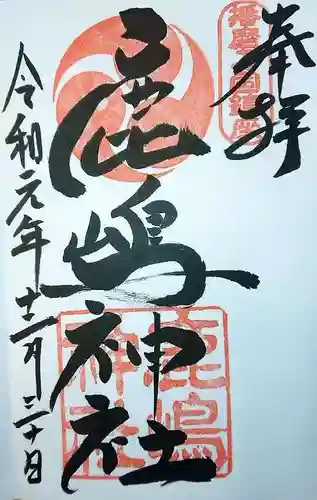 奉拝
播磨国鎮座
鹿嶋神社
鹿嶋神社
令和元年十二月三十日